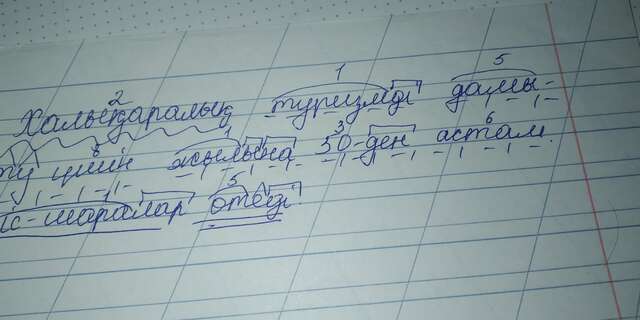 1 5
2
Халықаралық туризмді дамы-
ту үшін жылына 30-ден астам
іс-шаралар өтеді.